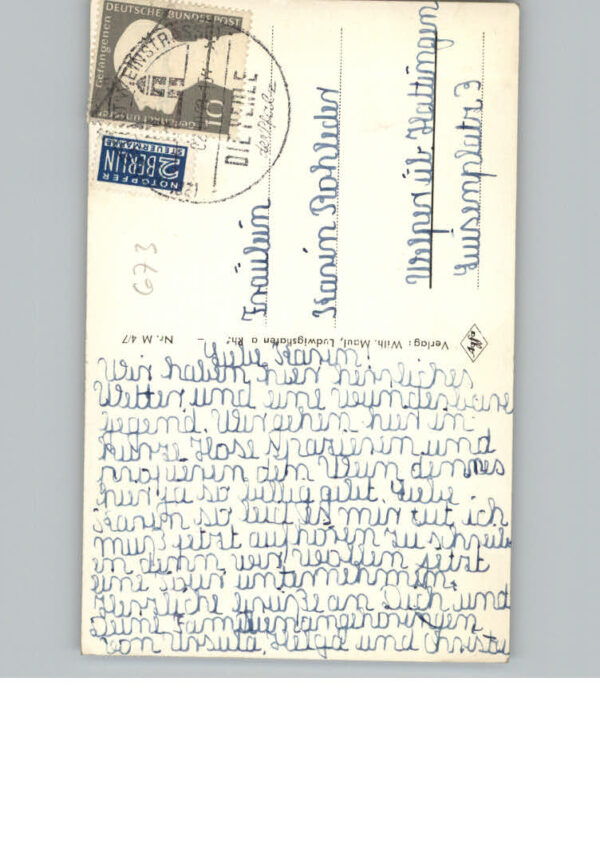 DEUTSCHE BUNDESPOST
Gedenkt unserer
Gefangenen
10
NOTOPFER
2 BERLIN
STEUERMARKE
WEINSTR.
DIE PERLE
der Pfalz
673
Fräulein
Karin Rohleder
Welper üb. Hattingen
Luisenplatz 3
Verlag: Wilh. Maul, Ludwigshafen a Rh.
Nr. M 4/7
Liebe Karin!
Wir haben hier herrliches
Wetter und eine wunderbare
gegend. Wir gehen hier in
kurze Hose spazieren und
probieren den Wein denn es
hier ja so billig gibt. Liebe
Karin so leid es mir tut ich
muß jetzt aufhören zu schreib
en denn wir wollen jetzt
eine Tour unternehmen.
Herzliche grüße an Dich und
Deine Familienangehörigen
von Ursula, Helga und Christa